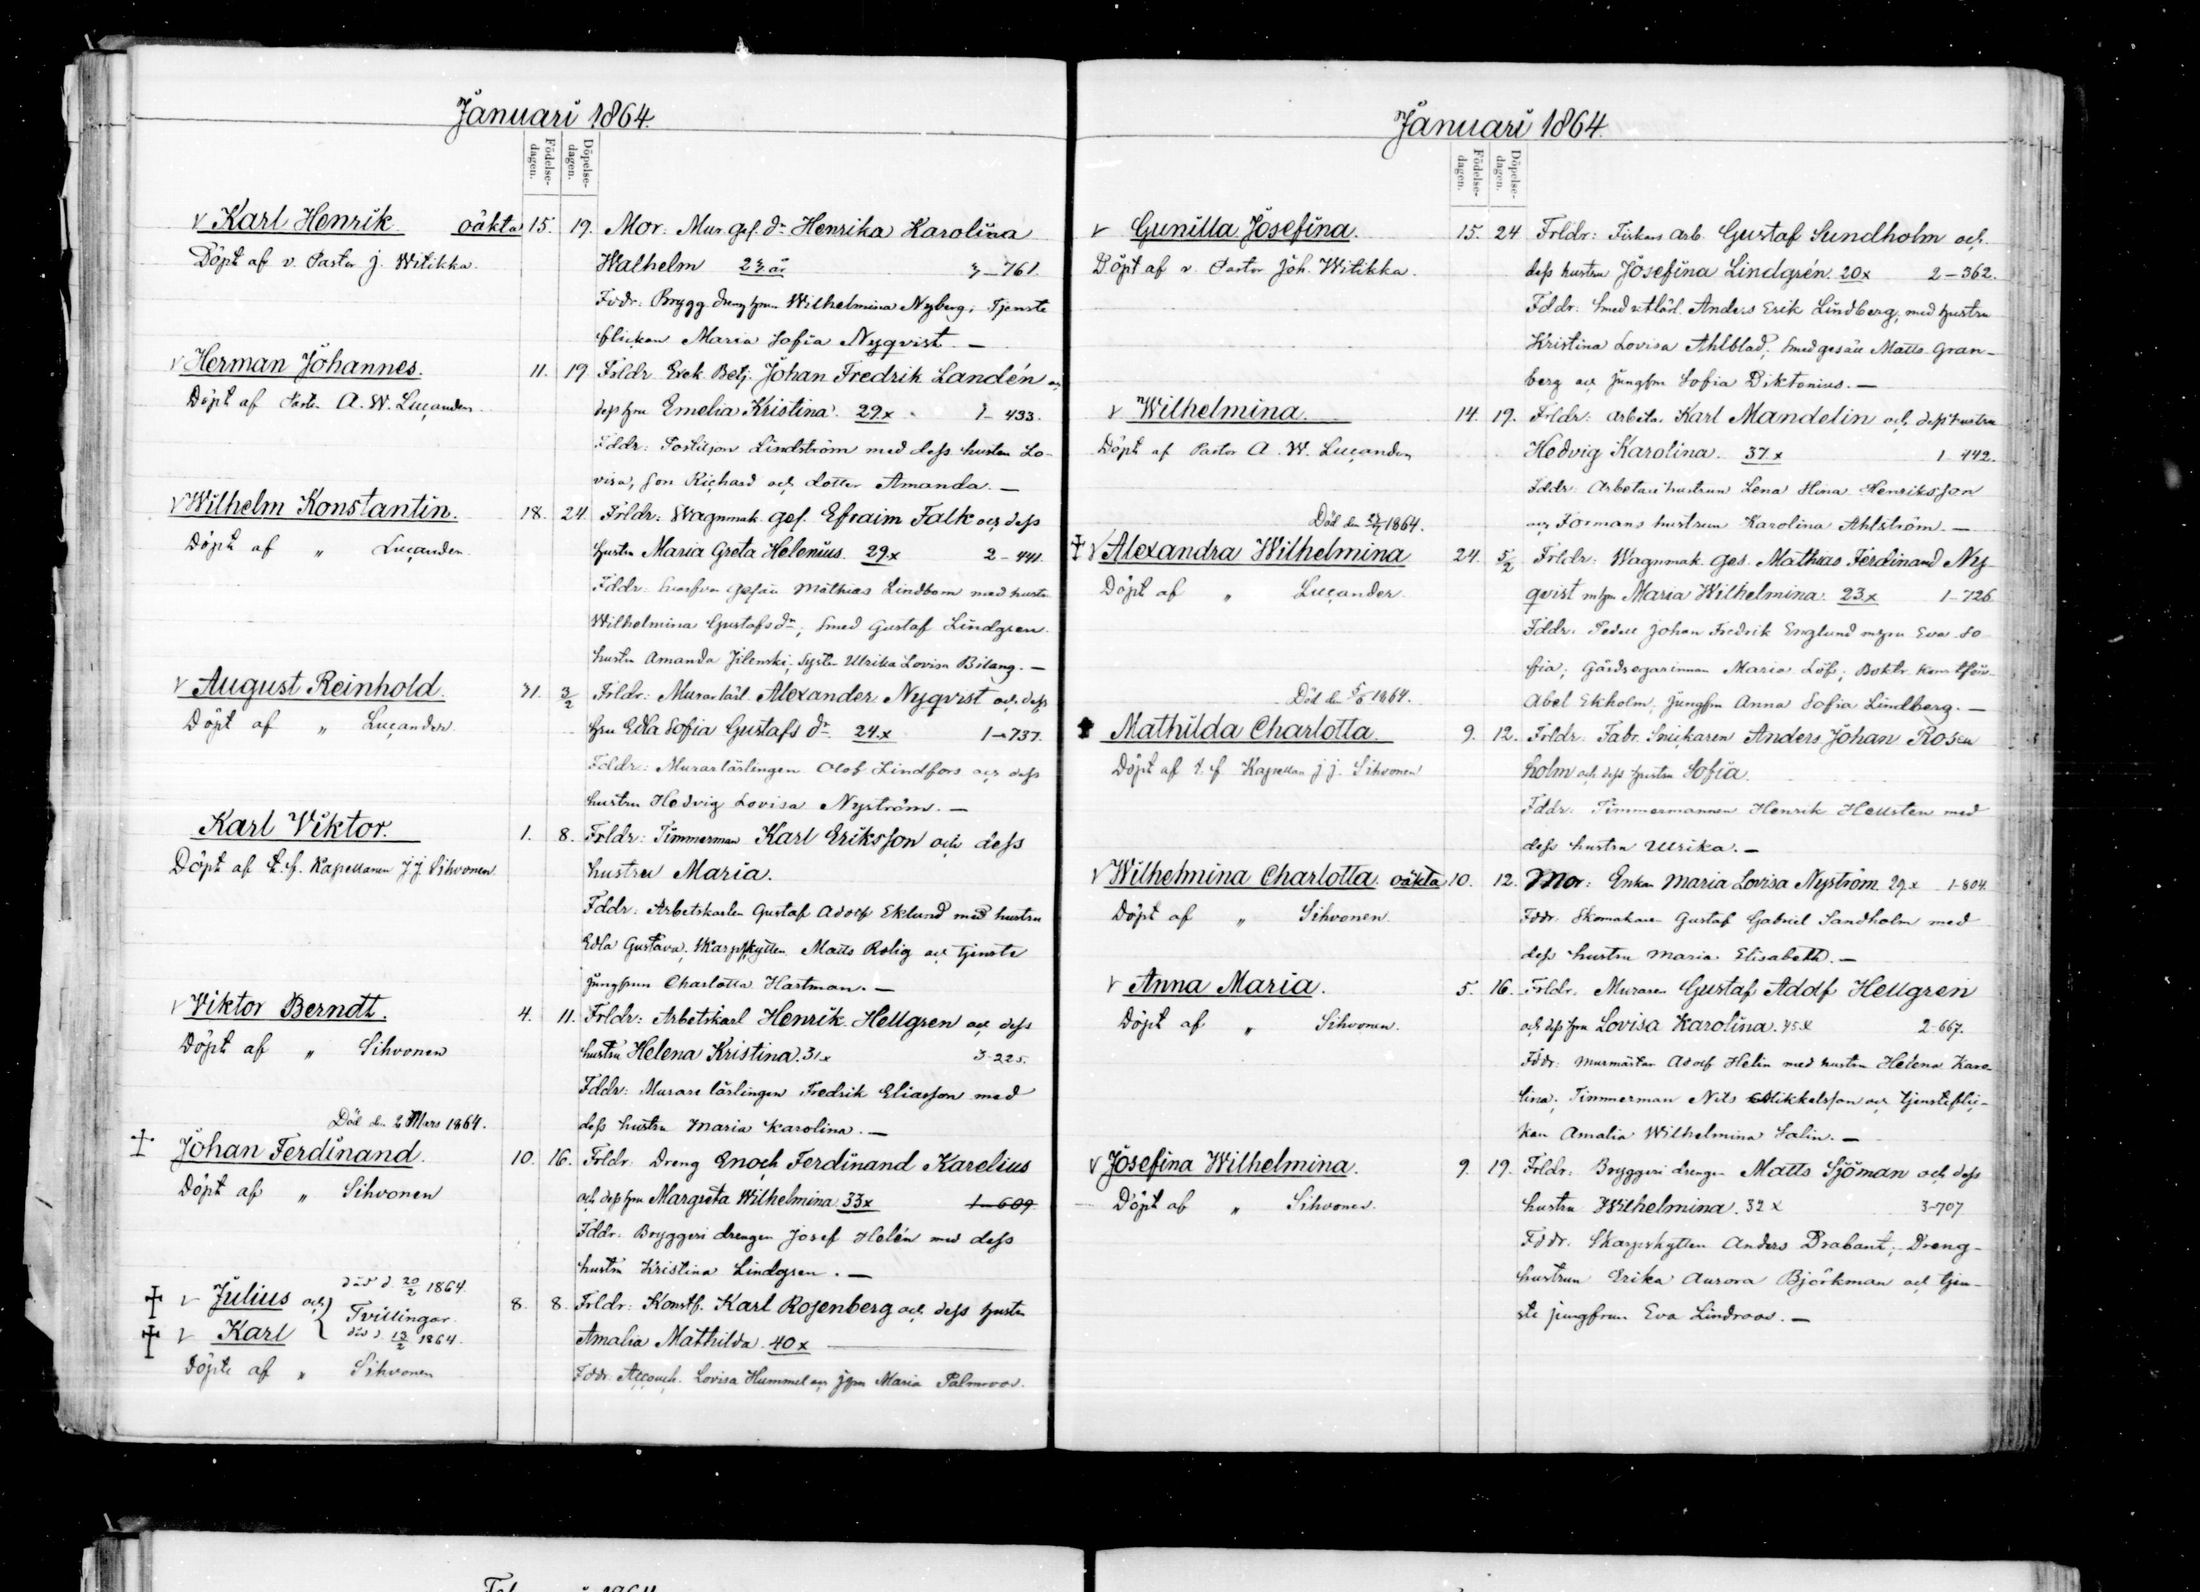 Januari 1864.
Födelse-dagen. Döpelse-dagen.
Karl Henrik oäkta 15. 19. Mor: Mur. ges. dr Henrika Karolina
Döpt af v. Pastor J. Witikka. Walhelm 23 år 3-761.
Fddr: Brygg. dreng hru Wilhelmina Nyberg, Tjenste
flickan Maria Sofia Nyqvist. —
Herman Johannes. 11. 19 Frldr Exek. Betj. Johan Fredrik Landén och
Döpt af Pastor A. W. Lucander. dess hru Emelia Kristina. 29x 1-433.
Fddr: Postiljon Lindström med dess hustru Lo-
visa, son Richard och dotter Amanda. —
Wilhelm Konstantin. 18. 24 Frldr: Wagnmak. ges. Efraim Falk och dess
Döpt af „ Lucander. hustru Maria Greta Helenius. 29x 2-441.
Fddr: Garfvar gesäll Mathias Lindbom med hustru
Wilhelmina Gustafsdr; Smed Gustaf Lindgren
hustru Amanda Jilenski; Syster Ulrika Lovisa Bilang. —
August Reinhold. 31. 3/2 Frldr: Murarlärl. Alexander Nyqvist och dess
Döpt af „ Lucander hru Edla Sofia Gustafs dr 24x 1-737.
Fddr: Murarlärlingen Olof Lindfors och dess
hustru Hedvig Lovisa Nyström. —
Karl Viktor. 1. 8. Frldr: Timmerman Karl Eriksson och dess
Döpt af t. f. Kapellanen J. J. Sihvonen hustru Maria.
Fddr: Arbetskarlen Gustaf Adolf Eklund med hustru
Edla Gustava; Skarpskytten Matts Rolig och tjenste
jungfrun Charlotta Hartman. —
Viktor Berndt. 4. 11. Frldr: Arbetskarl Henrik Hellgren och dess
Döpt af „ Sihvonen hustru Helena Kristina. 31x 3-225.
Fddr: Murare lärlingen Fredrik Eliasson med
Död den 2 Mars 1864. dess hustru Maria Karolina. —
Johan Ferdinand. 10. 16. Frldr: Dreng Enoch Ferdinand Karelius
Döpt af „ Sihvonen och dess hru Margreta Wilhelmina 33x 1-609
Fddr: Bryggeri drengen Josef Helén med dess
hustru Kristina Lindgren. —
död d. 20/2 1864.
Julius och Tvillingar. 8. 8. Frldr: Konstf. Karl Rosenberg och dess hustru
Karl död d 13/2 1864. Amalia Mathilda. 40x
Döpte af „ Sihvonen Fddr: Accouch. Lovisa Hummel och jgfru Maria Palmroos.
Januari 1864.
Födelse-dagen. Döpelse-dagen.
Gunilla Josefina. 15. 24 Frldr: Fiskars arb. Gustaf Sundholm och
Döpt af v. Pastor Joh. Witikka. dess hustru Josefina Lindgrén. 20x 2-362.
Fddr: Smed Anders Erik Lindberg, med hustru
Kristina Lovisa Ahlblad; Smedgesäll Matts Gran-
berg och Jungfru Sofia Diktonius. —
Wilhelmina. 14. 19. Frldr: arbetar. Karl Mandelin och dess hustru
Döpt af Pastor A. W. Lucander Hedvig Karolina. 37x 1-442.
Fddr: Arbetare hustrun Lena Stina Henriksson
Död den 1864. och Formans hustrun Karolina Ahlström. —
Alexandra Wilhelmina 24. 5/2 Frldr: Wagnmak. ges. Mathias Ferdinand Ny-
Döpt af „ Lucander. qvist m hru Maria Wilhelmina. 23x 1-726
Fddr: Pedell Johan Fredrik Englund m hru Eva So
fia; Gårdsegarinnan Maria Löf; Boktr. konstför.
Död den 5/6 1864. Abel Ekholm, Jungfru Anna Sofia Lindberg. —
Mathilda Charlotta. 9. 12. Frldr: Fabr. Snickaren Anders Johan Rosen
Döpt af t. f. Kapellan J. J. Sihvonen holm och dess hustru Sofia.
Fddr: Timmermannen Henrik Hellsten med
dess hustru Ulrika. —
Wilhelmina Charlotta. oäkta 10. 12. Mor: Enkan Maria Lovisa Nyström 29x 1-804.
Döpt af „ Sihvonen. Fddr: Skomakare Gustaf Gabriel Sandholm med
dess hustru Maria Elisabeth. —
Anna Maria. 5. 16. Frldr: Muraren Gustaf Adolf Hellgren
Döpt af „ Sihvonen. och dess hru Lovisa Karolina. 45x 2-667.
Fddr: Murmästar Adolf Helin med hustru Helena Karo-
lina; Timmerman Nils Mikkelsson och tjensteflic-
kan Amalia Wilhelmina Salin. —
Josefina Wilhelmina. 9. 19. Frldr: Bryggeri drengen Matts Sjöman och dess
Döpt af „ Sihvonen. hustru Wilhelmina. 32x 3-707
Fddr: Skarpskytten Anders Drabant; Dreng-
hustrun Erika Aurora Björkman och tjen-
ste jungfrun Eva Lindroos. —